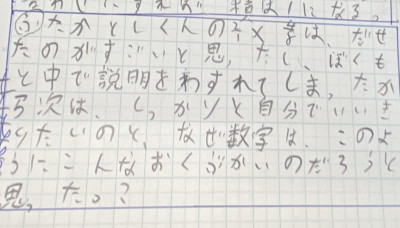 すれば 積は1になる。
㋫たかとしくんの は、だせ
たのがすごいと思ったし、ぼくも
と中で説明をわすれてしまったか
ら次は、しっかりと自分でいいき
りたいのと、なぜ数字は、このよ
うにこんなおくぶかいのだろうと
思った。?